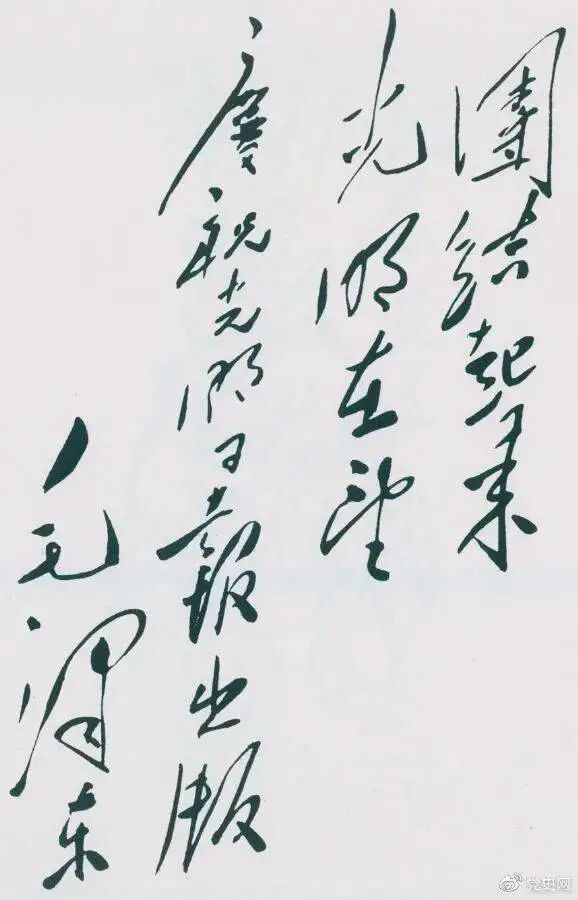 團結起來
光明在望
慶祝光明日報出版
毛澤东
党史网